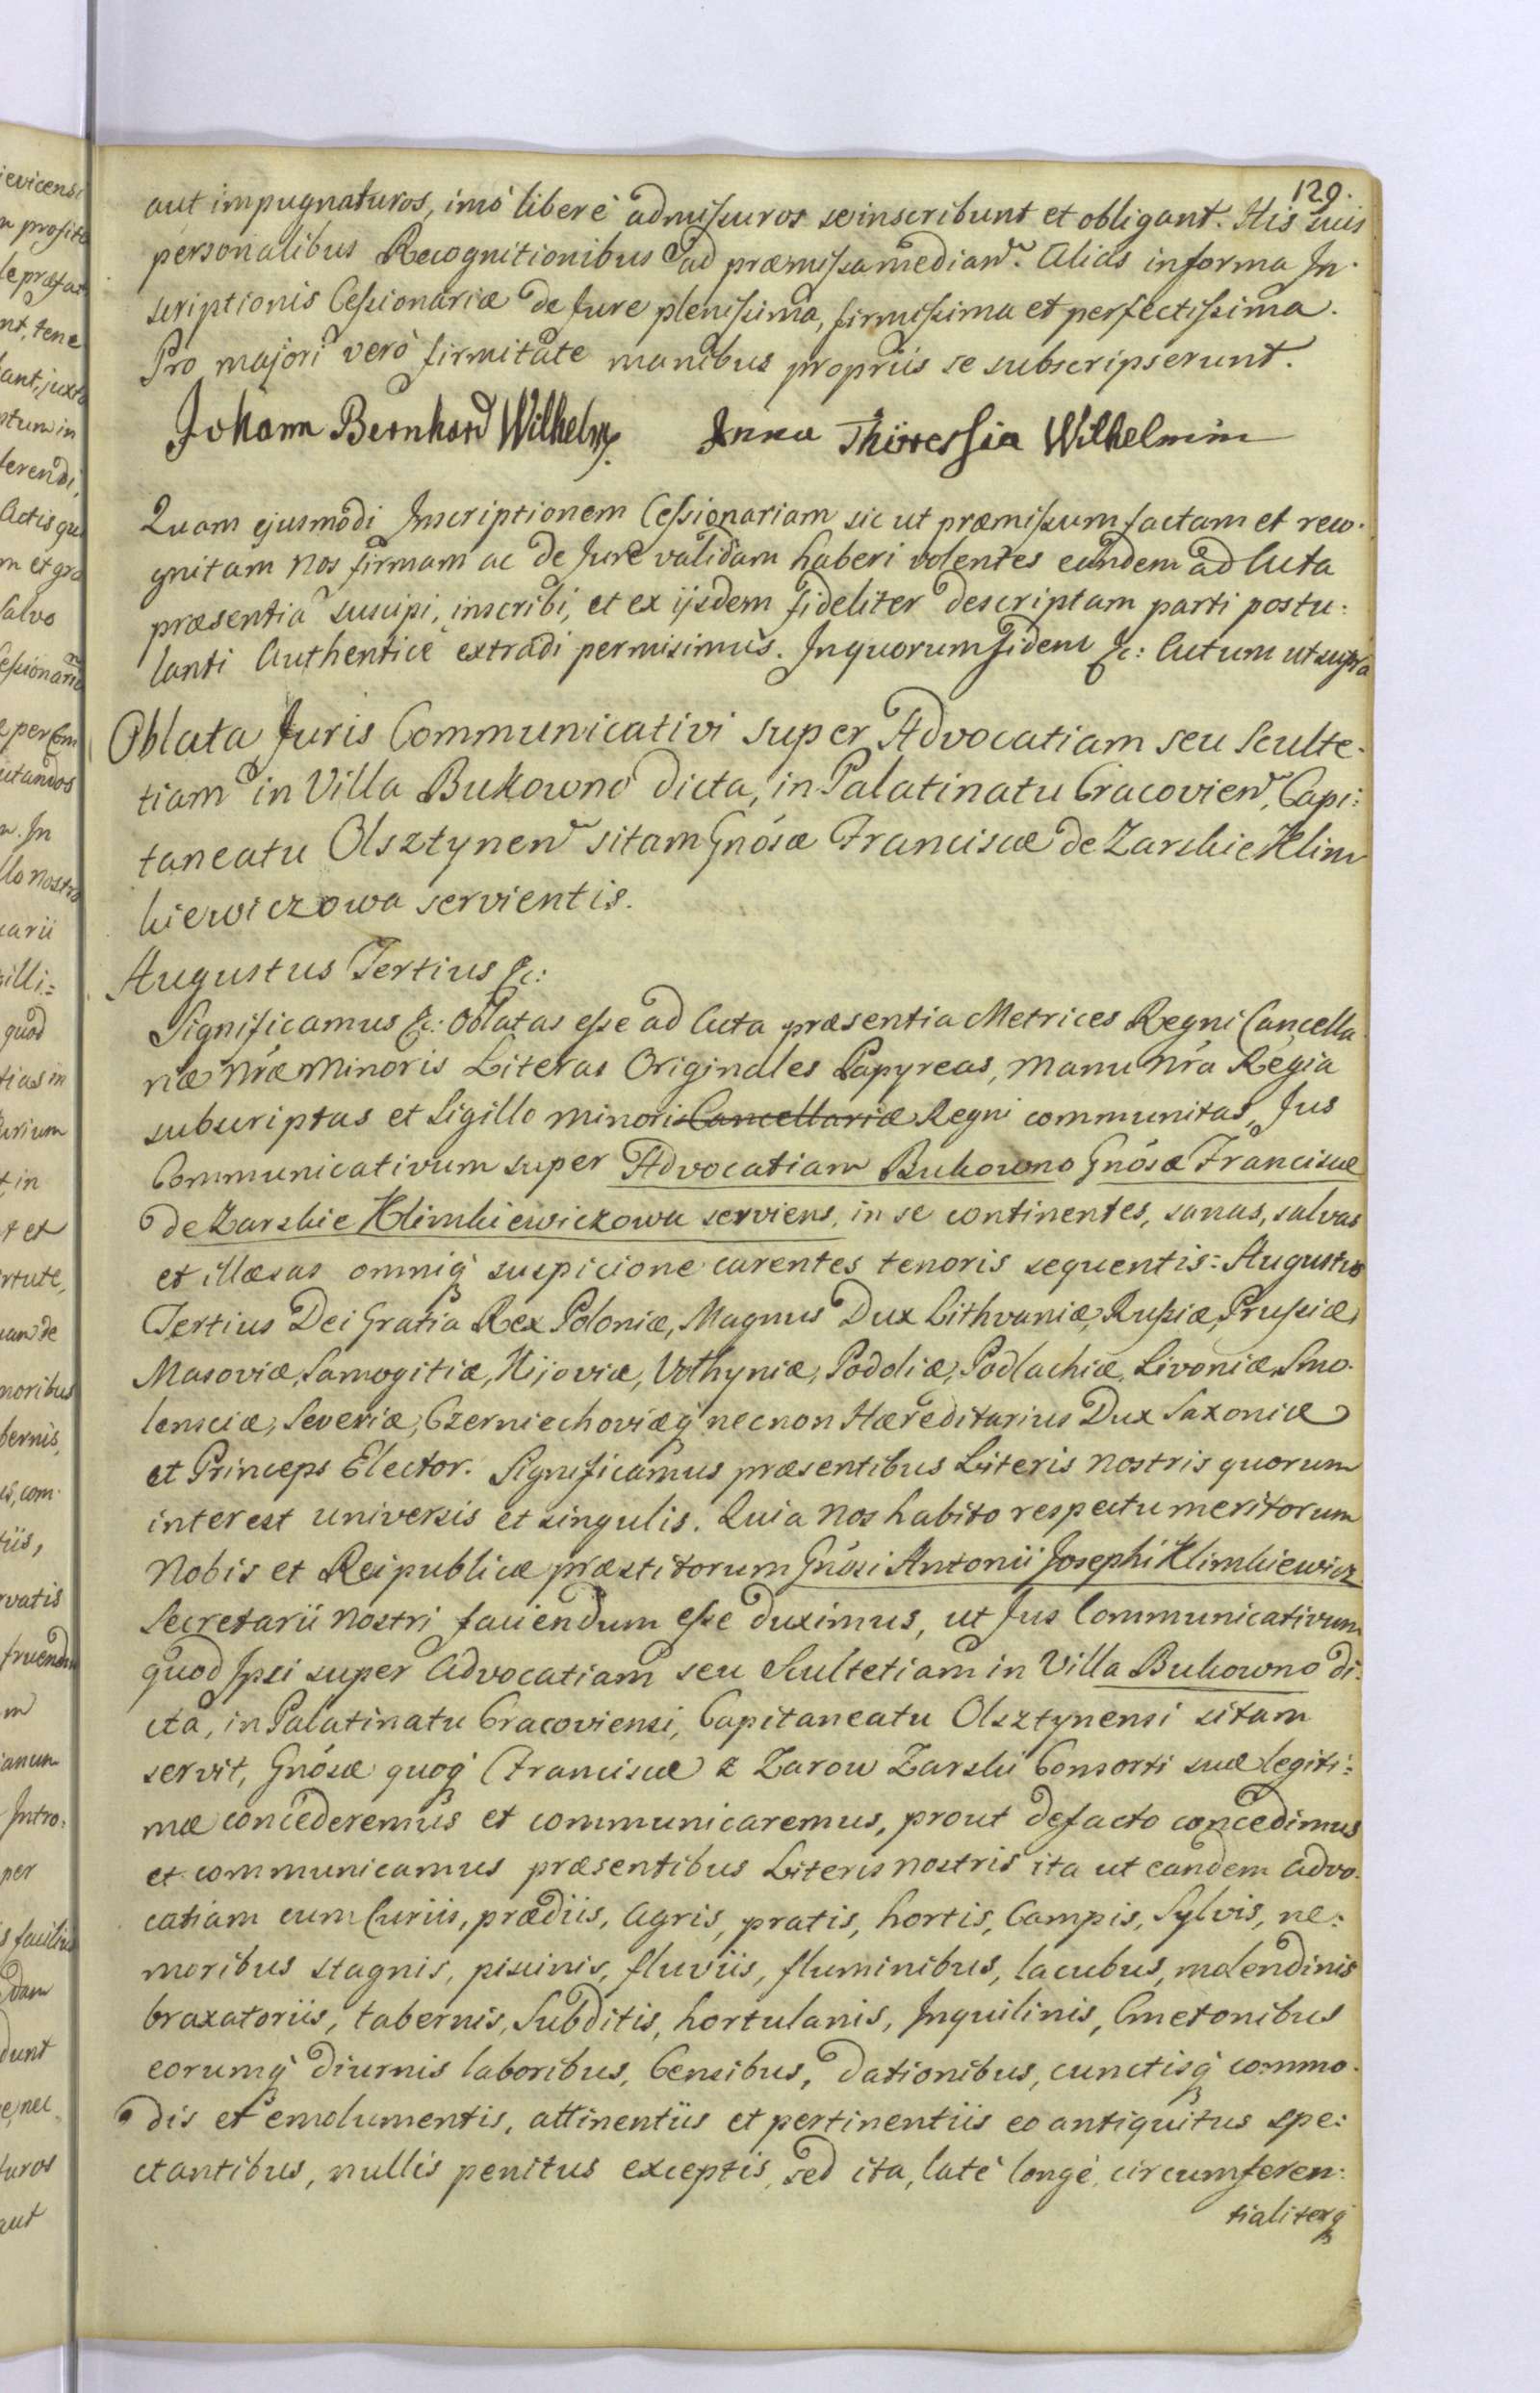 129.
aut impugnaturos, imò liberè admissuros se inscribunt et obligant. His suis
personalibus Recognitionibus ad præmissa median. Alias in forma In-
scriptionis Cessionariæ de Jure plenissima, firmissima et perfectissima.
Pro majori verò firmitate manibus propriis se subscripserunt.
Johann Bernhard Wilhelm. Anna Thirressia Wilhelmin
Quam ejusmodi Inscriptionem Cessionariam sic ut præmissum factam et reco-
gnitam Nos firmam ac de Jure validam haberi volentes eandem ad Acta
præsentia suscipi, inscribi, et ex ijsdem fideliter descriptam parti postu:
lanti Authenticè extradi permisimus. In quorum fidem &c: Actum ut supra
Oblata Juris Communicativi super Advocatiam seu Sculte-
tiam in Villa Bukowno dicta, in Palatinatu Cracovien, Capi:
taneatu Olsztynen sitam Gnósæ Franciscæ de Zarskie Klim
kiewiczowa servientis.
Augustus Tertius &c:
Significamus &c: Oblatas esse ad Acta præsentia Metrices Regni Cancella
riæ Nræ Minoris Literas Originales Papyreas, manu Nra Regia
subscriptas et Sigillo minoris Cancellariæ Regni communitas, Jus
Communicativum super Advocatiam Bukowno Gnósæ Franciscæ
de Zarskie Klimkiewiczowa serviens, in se continentes, sanas, salvas
et illæsas omniq́ suspicione carentes tenoris sequentis: Augustus
Tertius Dei Gratia Rex Poloniæ, Magnus Dux Lithvaniæ, Russiæ, Prussiæ,
Masoviæ, Samogitiæ, Kijoviæ, Volhyniæ, Podoliæ, Podlachiæ, Livoniæ, Smo-
lensciæ, Severiæ, Czerniechoviæq́ necnon Hæreditarius Dux Saxoniæ
et Princeps Elector. Significamus præsentibus Literis Nostris quorum
interest universis et singulis. Quia Nos habito respectu meritorum
Nobis et Reipublicæ præstitorum Gnósi Antonii Josephi Klimkiewicz
Secretarii Nostri faciendum esse duximus, ut Jus Communicativum
quod Ipsi super Advocatiam seu Scultetiam in Villa Bukowno di-
cta, in Palatinatu Cracoviensi, Capitaneatu Olsztynensi sitam
servit, Gnósæ quoq́ Franciscæ z Zarow Zarski Consorti suæ legiti:
mæ concederemus et communicaremus, prout de facto concedimus
et communicamus præsentibus Literis nostris ita ut eandem Advo-
catiam cum Curiis, prædiis, Agris, pratis, hortis, Campis, Sylvis, ne:
moribus stagnis, piscinis, fluviis, fluminibus, lacubus, molendinis
braxatoriis, tabernis, Subditis, hortulanis, Inquilinis, Cmetonibus
eorumq́ diurnis laboribus, Censibus, dationibus, cunctisq́ commo-
dis et emolumentis, attinentiis et pertinentiis eo antiquitus spe:
ctantibus, nullis penitus exceptis, sed ita, latè longè, circumferen:
tialiterq́